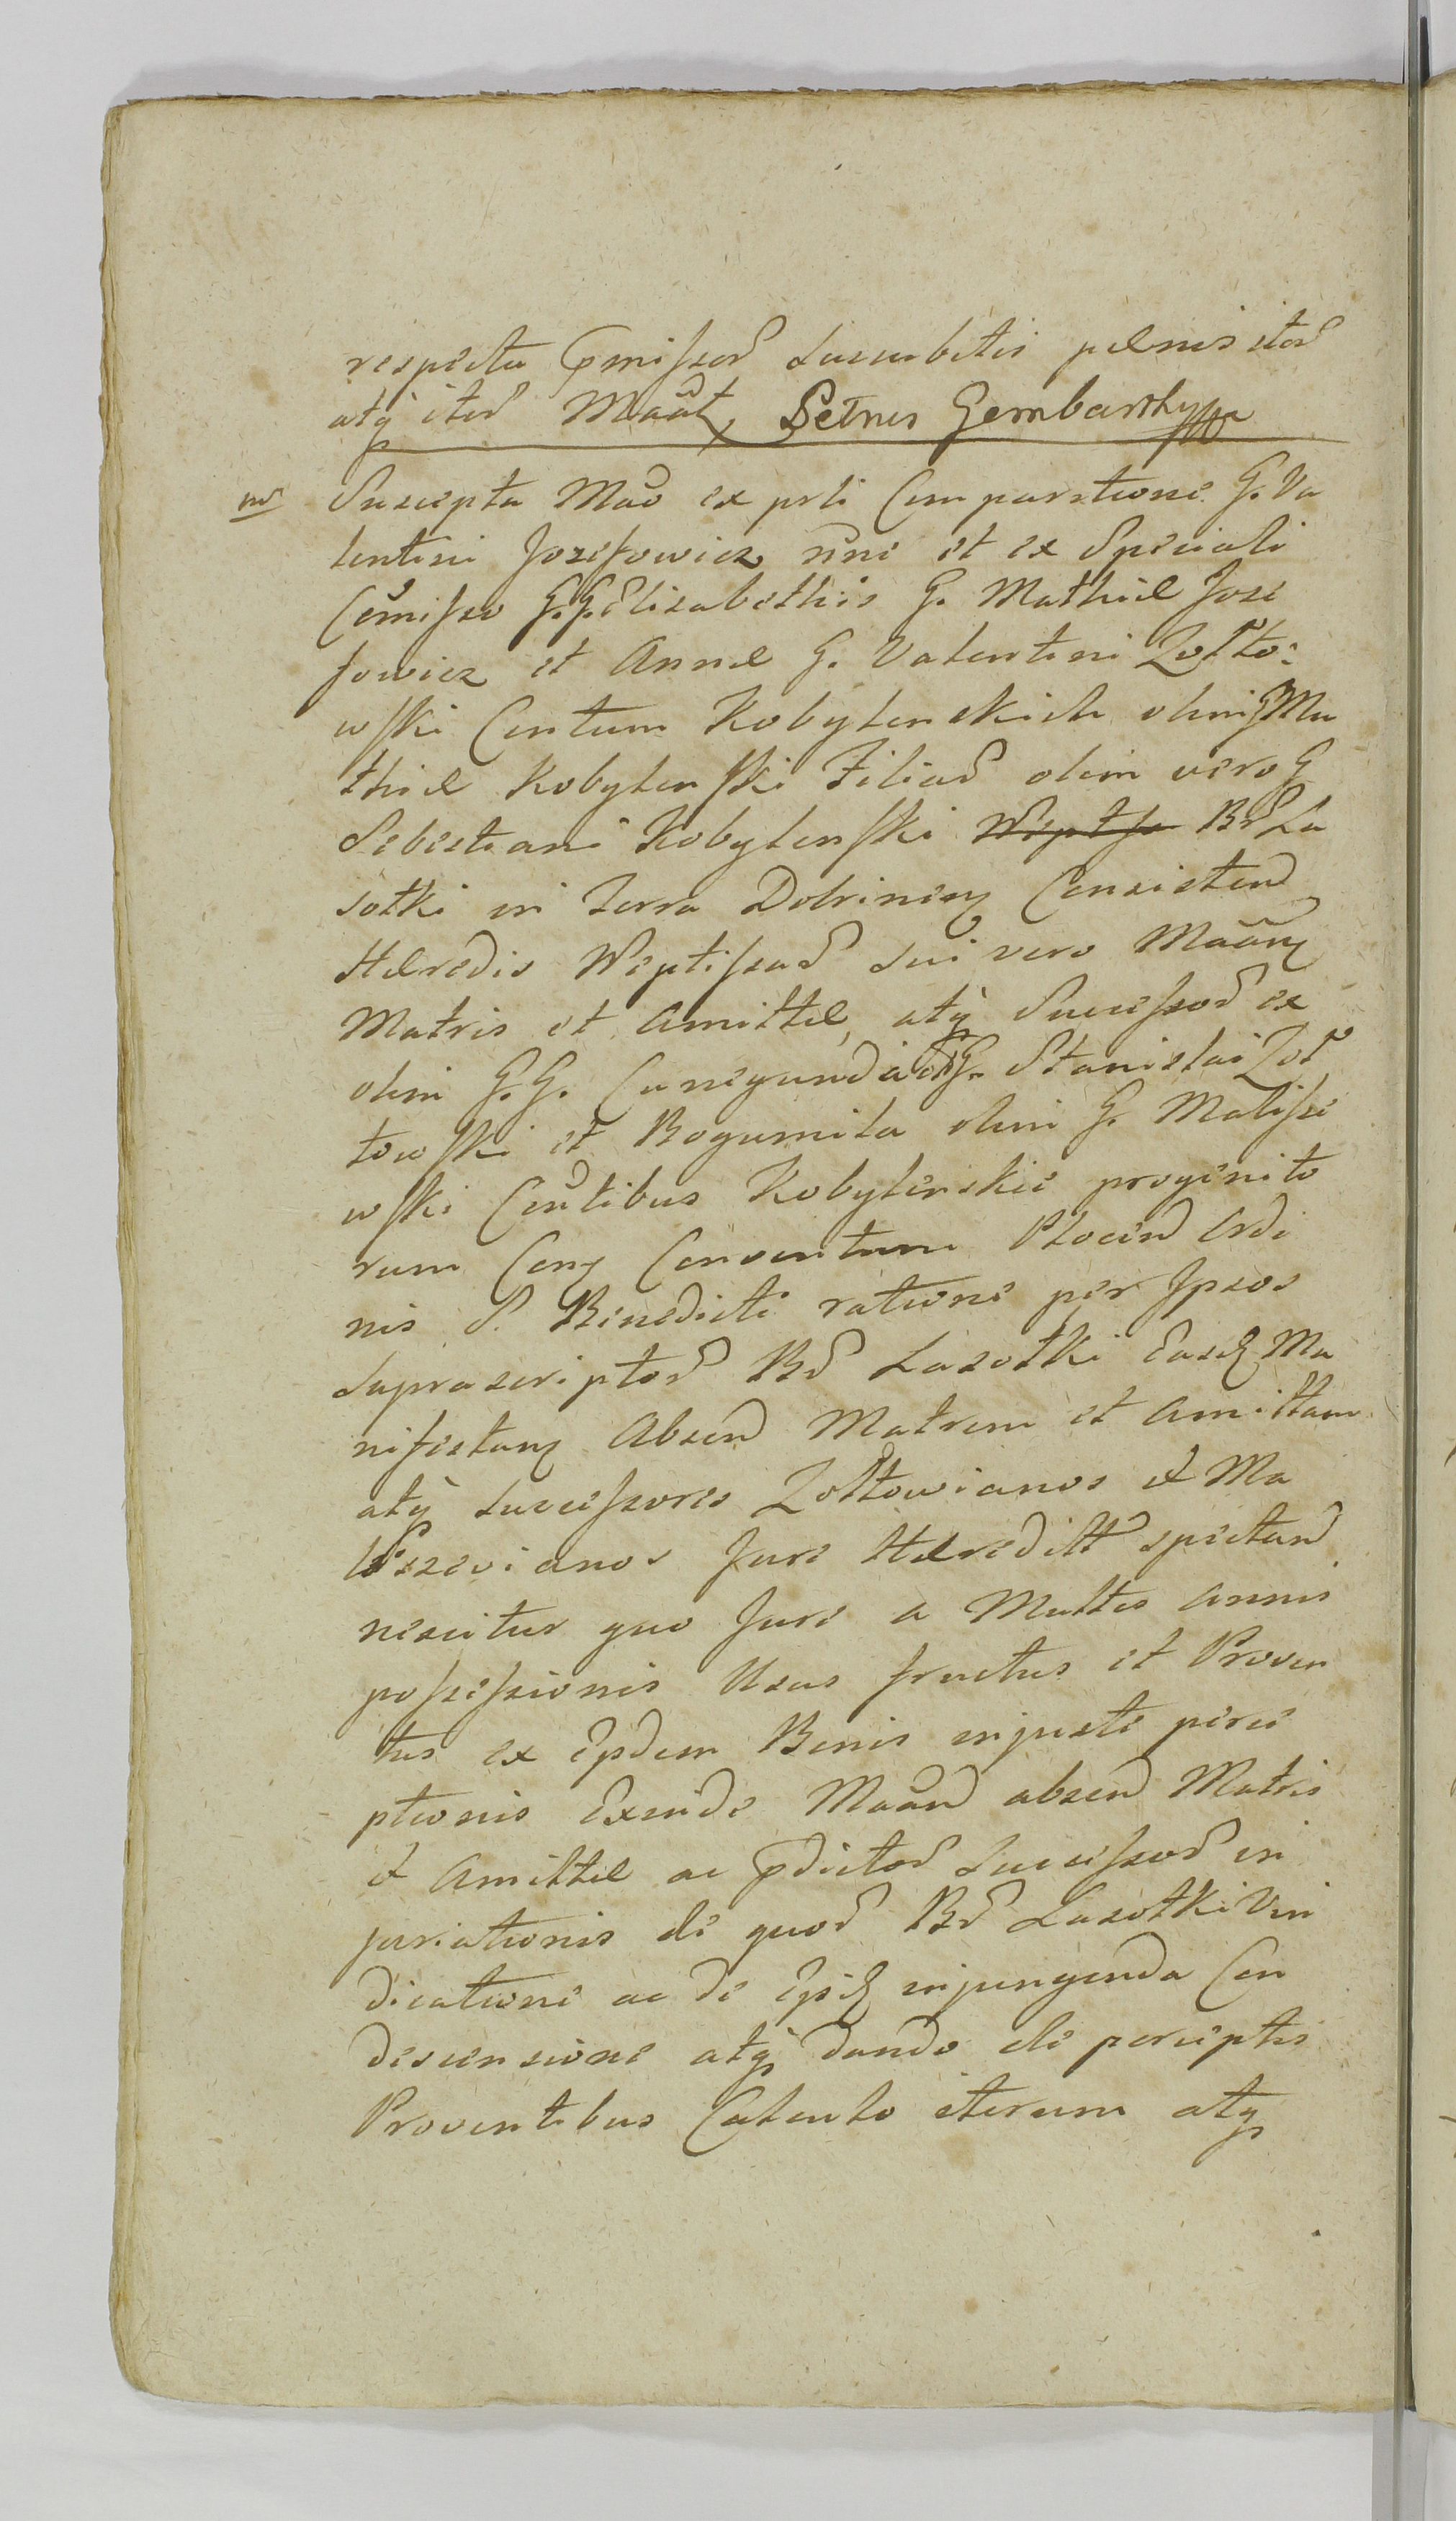 respectu pmissor succubitis pœnis itor
atq iter Maat, Petrus Gembarthy mp
md Suscepta Mao ex prli Comparatione G. Va
lentini Jozefowicz nne et ex Speciali
Comisso G. G. Elisabethis G. Mathiæ Joze
fowicz et Annæ G. Valentini Zołto:
wski Contum Kobylenskich olim G Ma
thiæ Kobylenski Filiar olim vero G
Sebestiani Kobylenski Br La
sotki in Terra Dobrinen Consisten
Hæredis Neptissar sui vero Maan
Matris et Amittæ, atq Successor ex
olim G. G. Cunegunda G. Stanislai Zoł
towski et Bogumila olim G. Malisze
wski Contibus Kobylenskie progenito
rum Con Conventum Plocen Ordi
nis S. Benedicti ratione per Ipsos
Suprascriptor Br Lasotki easq Ma
nifestan Absen Matrem et Amittam
atq successores Zołtowianos et Ma
liszevianos Jure Hæreditt spectan
nescitur quo Jure a Multis Annis
possessionis Usus fructus et Proven
tus ex Epdem Bonis injuste perce
ptionis Exinde Maan absen Matris
et Amittæ ac pdictor Successor in
juriationis de quor Br Lasotki Vin
dicatione ac de Epis injungenda Con
descensione atq dando de perceptis
Proventibus Calculo iterum atq